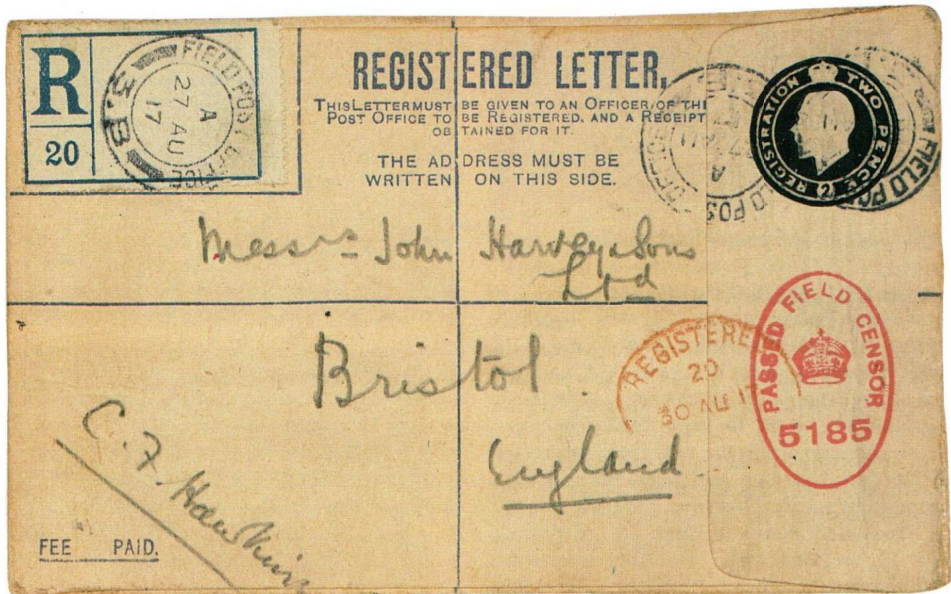 R
20
FIELD POST OFFICE
A
27 AU
17
3.B
REGISTERED LETTER.
THIS LETTER MUST BE GIVEN TO AN OFFICER OF THE
POST OFFICE TO BE REGISTERED, AND A RECEIPT
OBTAINED FOR IT.
THE ADDRESS MUST BE
WRITTEN ON THIS SIDE.
REGISTRATION TWO PENCE
2
FIELD POS
Messrs John Harvey & Sons
Ltd
Bristol
England.
REGISTERE
20
30 AU 17
PASSED FIELD CENSOR
5185
C. F. Hawkins
FEE PAID.